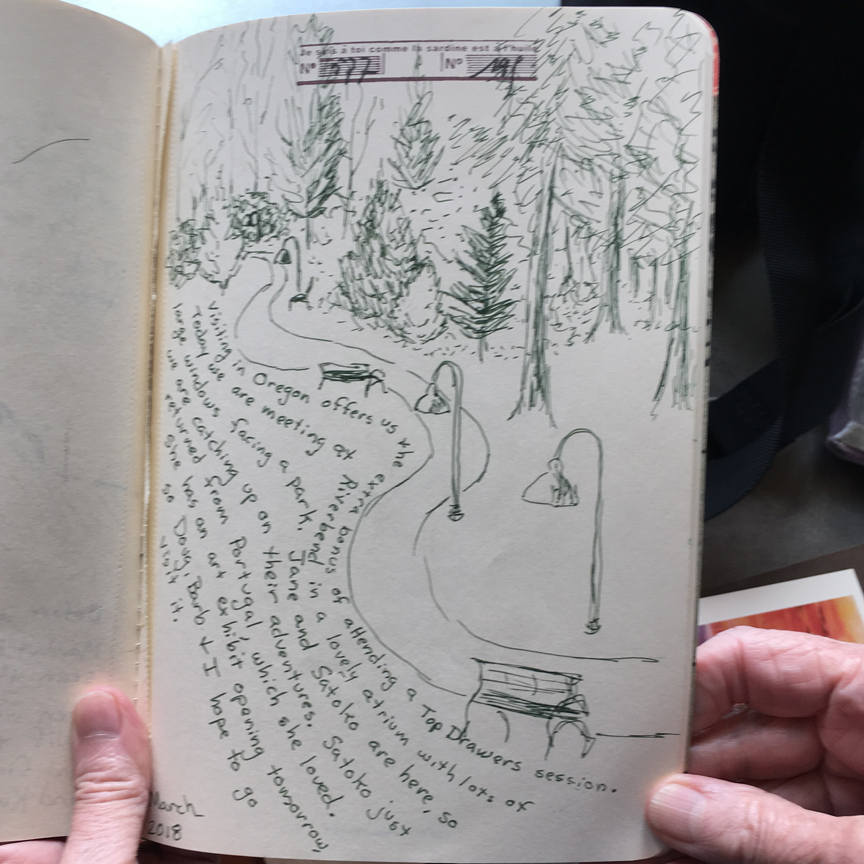 Je suis à toi comme la sardine est à l'huile
Nº Nº
Visiting in Oregon offers us the extra bonus of attending a Top Drawers session.
Today we are meeting at Riverbend in a lovely atrium with lots of
large windows facing a park. Jane and Satoko are here, so
we are catching up on their adventures. Satoko just
returned from Portugal, which she loved.
She has an art exhibit opening tomorrow,
so Doug, Barb + I hope to go
visit it.
March
2018